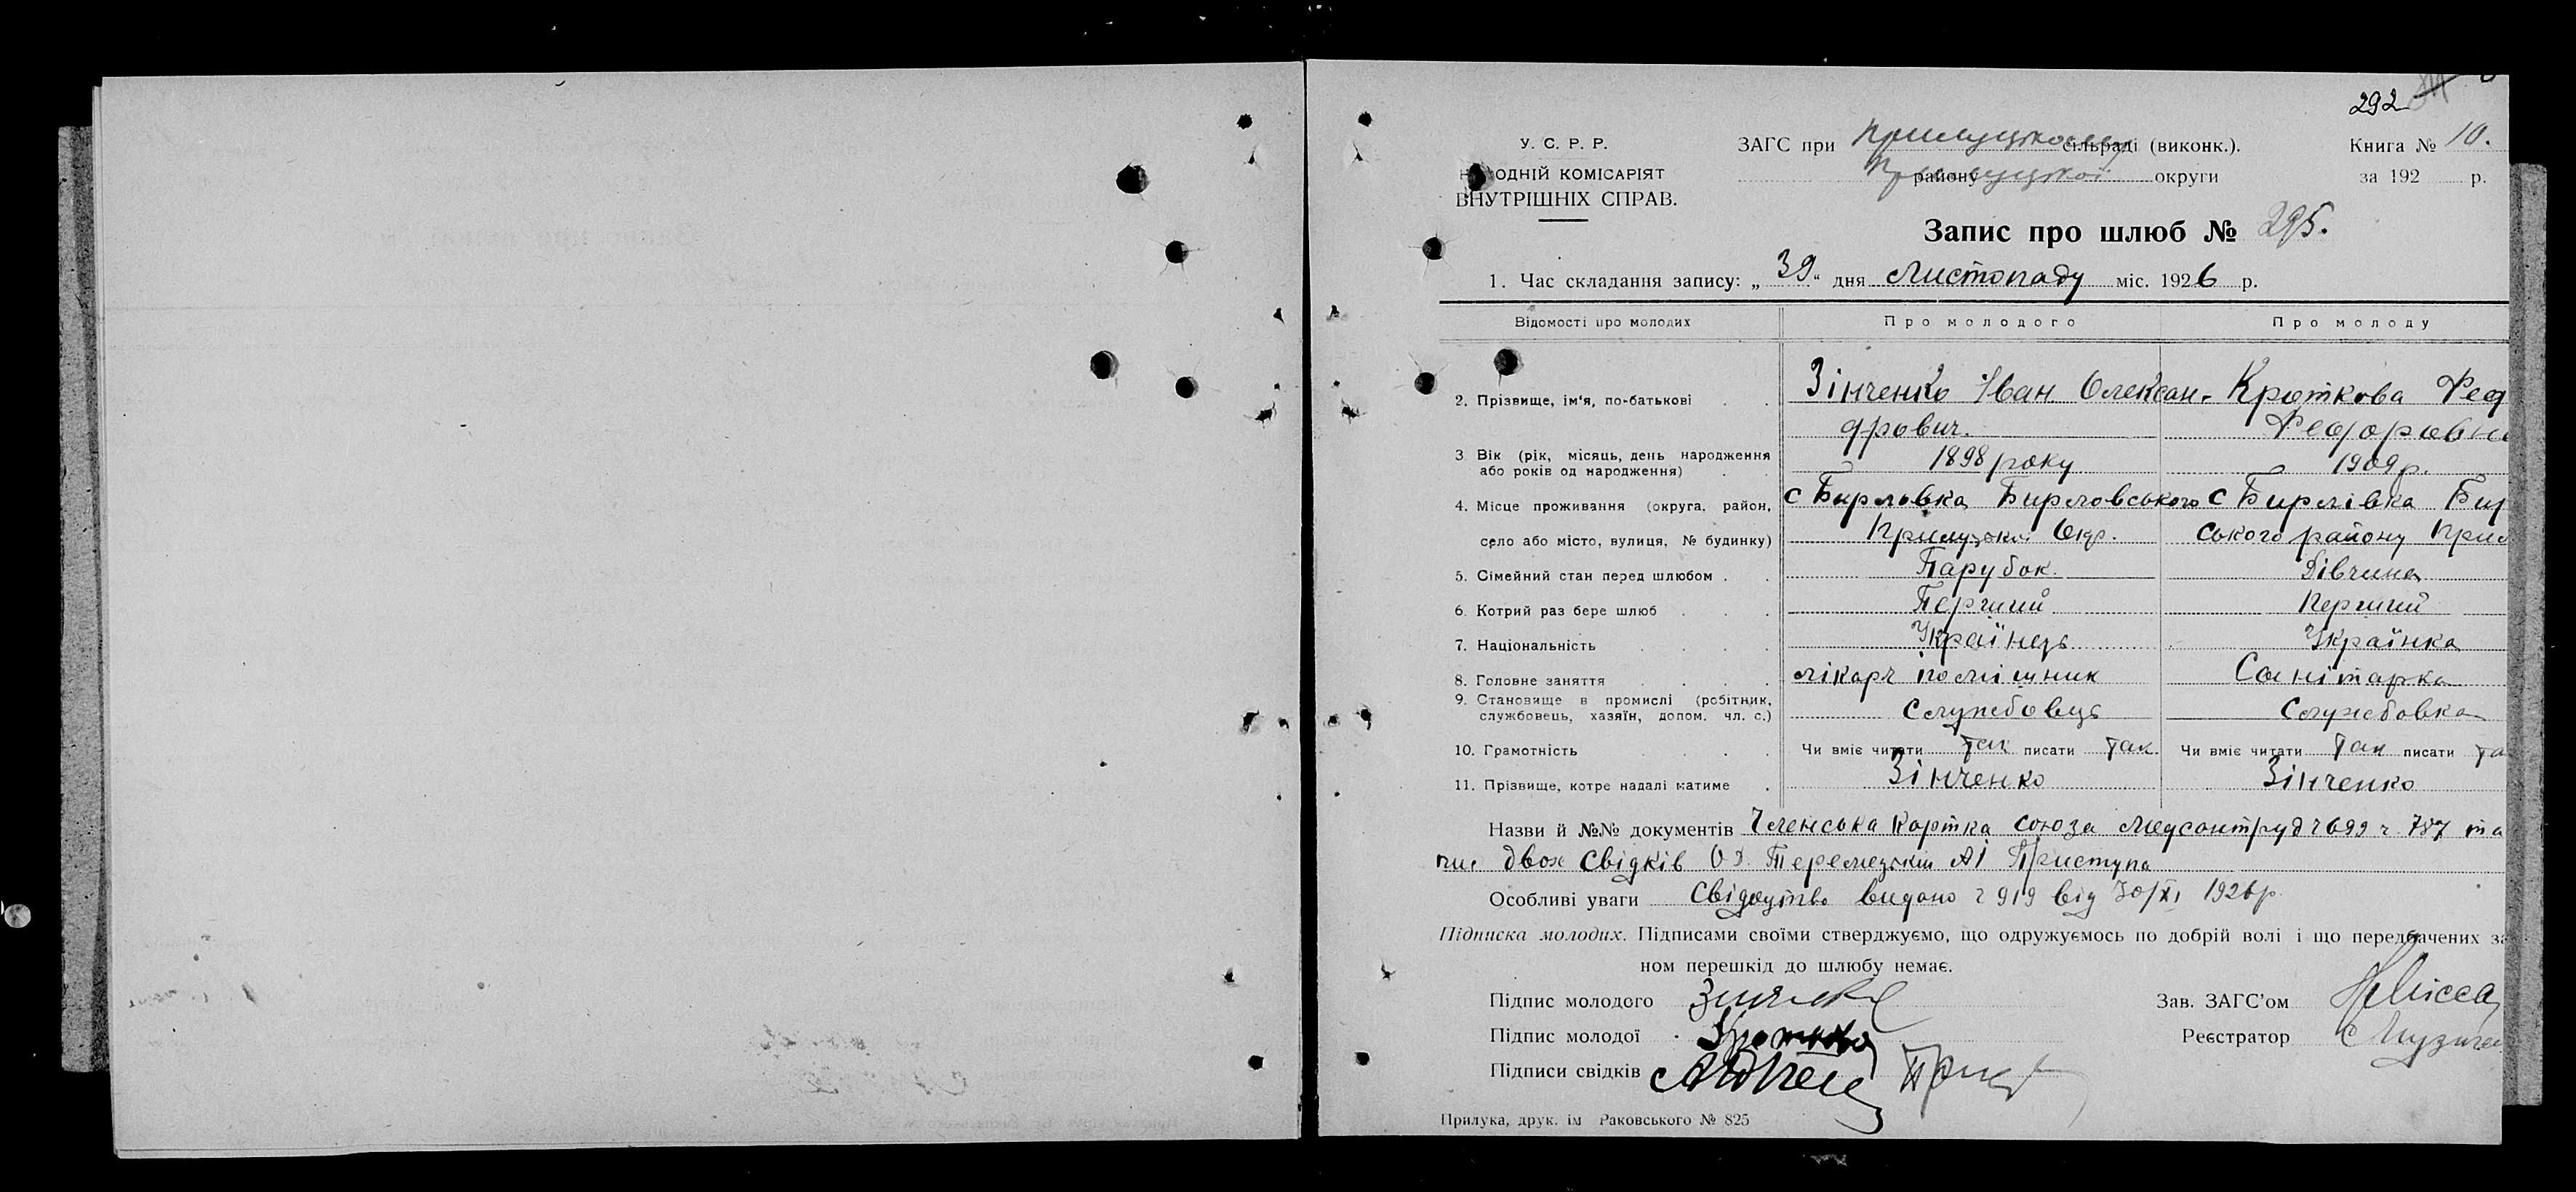 292
У. С. Р. Р.
НАРОДНІЙ КОМІСАРІЯТ
ВНУТРІШНІХ СПРАВ.
ЗАГС при Прилуцькому сільраді (виконк.).
району Прилуцької округи
Книга № 10.
за 192 р.
Запис про шлюб № 295.
1. Час складання запису: „ 30 “ дня Листопаду міс. 1926 р.
Відомості про молодих Про молодого Про молоду
2. Прізвище, ім‘я, по-батькові Зінченко Іван Олексан- Кроткова Фед
дрович. Федоровна
3. Вік (рік, місяць, день народження 1898 року 1909 р.
або років од народження)
4. Місце проживання (округа, район, с Бирловка Бирловського с Бирлівка Бир
село або місто, вулиця, № будинку) Прилуцької Окр. ського району Прил
5. Сімейний стан перед шлюбом . Парубок. Дівчина
6. Котрий раз бере шлюб Перший Перший
7. Національність Українець Українка
8. Головне заняття лікарь помішник Санітарка
9. Становище в промислі (робітник, Службовець Службовка
службовець, хазяїн, допом. чл. с.)
10. Грамотність Чи вміє читати так писати так. Чи вміє читати так писати та
11. Прізвище, котре надалі матиме Зінченко Зінченко
Назви й №№ документів Членська картка союза медсантруд ч 699 ч. 787 та
двох свідків А І Приступа
Особливі уваги Свідоцтво видано ч 919 від 30/XI 1926 р.
Підписка молодих. Підписами своїми стверджуємо, що одружуємось по добрій волі і що передбачених за
ном перешкід до шлюбу немає.
Підпис молодого
Підпис молодої Кроткова
Підписи свідків
Зав. ЗАГС’ом
Реєстратор
Прилука, друк. ім Раковського № 825